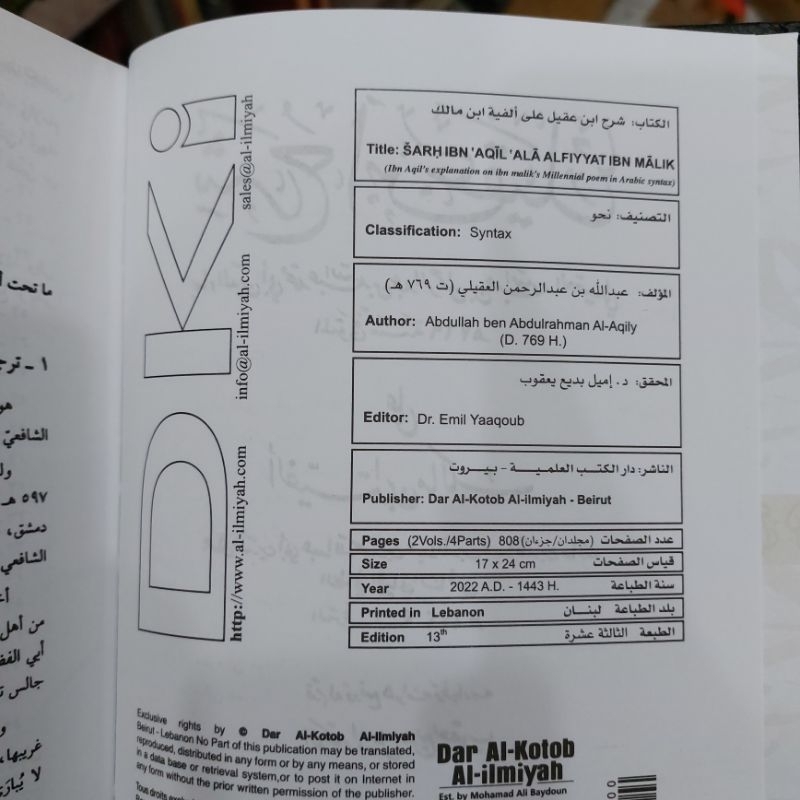 الكتاب: شرح ابن عقيل على ألفية ابن مالك
Title: ŠARḤ IBN 'AQĪL 'ALĀ ALFIYYAT IBN MĀLIK
(Ibn Aqil's explanation on ibn malik's Millennial poem in Arabic syntax)
التصنيف: نحو
Classification: Syntax
المؤلف: عبدالله بن عبدالرحمن العقيلي (ت ٧٦٩ هـ)
Author: Abdullah ben Abdulrahman Al-Aqily
(D. 769 H.)
المحقق: د. إميل بديع يعقوب
Editor: Dr. Emil Yaaqoub
الناشر: دار الكتب العلميـــة - بيـروت
Publisher: Dar Al-Kotob Al-ilmiyah - Beirut
Pages (2Vols./4Parts) 808 (مجلدان/جزءان) عدد الصفحات
Size 17 x 24 cm قياس الصفحات
Year 2022 A.D. - 1443 H. سنة الطباعة
Printed in Lebanon بلد الطباعة لبنـــان
Edition 13th الطبعة الثالثة عشرة
DKi
http://www.al-ilmiyah.com
info@al-ilmiyah.com
sales@al-ilmiyah
Exclusive rights by © Dar Al-Kotob Al-Ilmiyah
Beirut - Lebanon No Part of this publication may be translated,
reproduced, distributed in any form or by any means, or stored
in a data base or retrieval system,or to post it on Internet in
any form without the prior written permission of the publisher.
Tous droits
Dar Al-Kotob
Al-ilmiyah
Est. by Mohamad Ali Baydoun
ما تحت
١ - ترج
هو
الشافعيّ
ول
٥٩٧ هـ
دمشق،
الشافعي
من أهل
أبي الفض
جالس
غريبها،